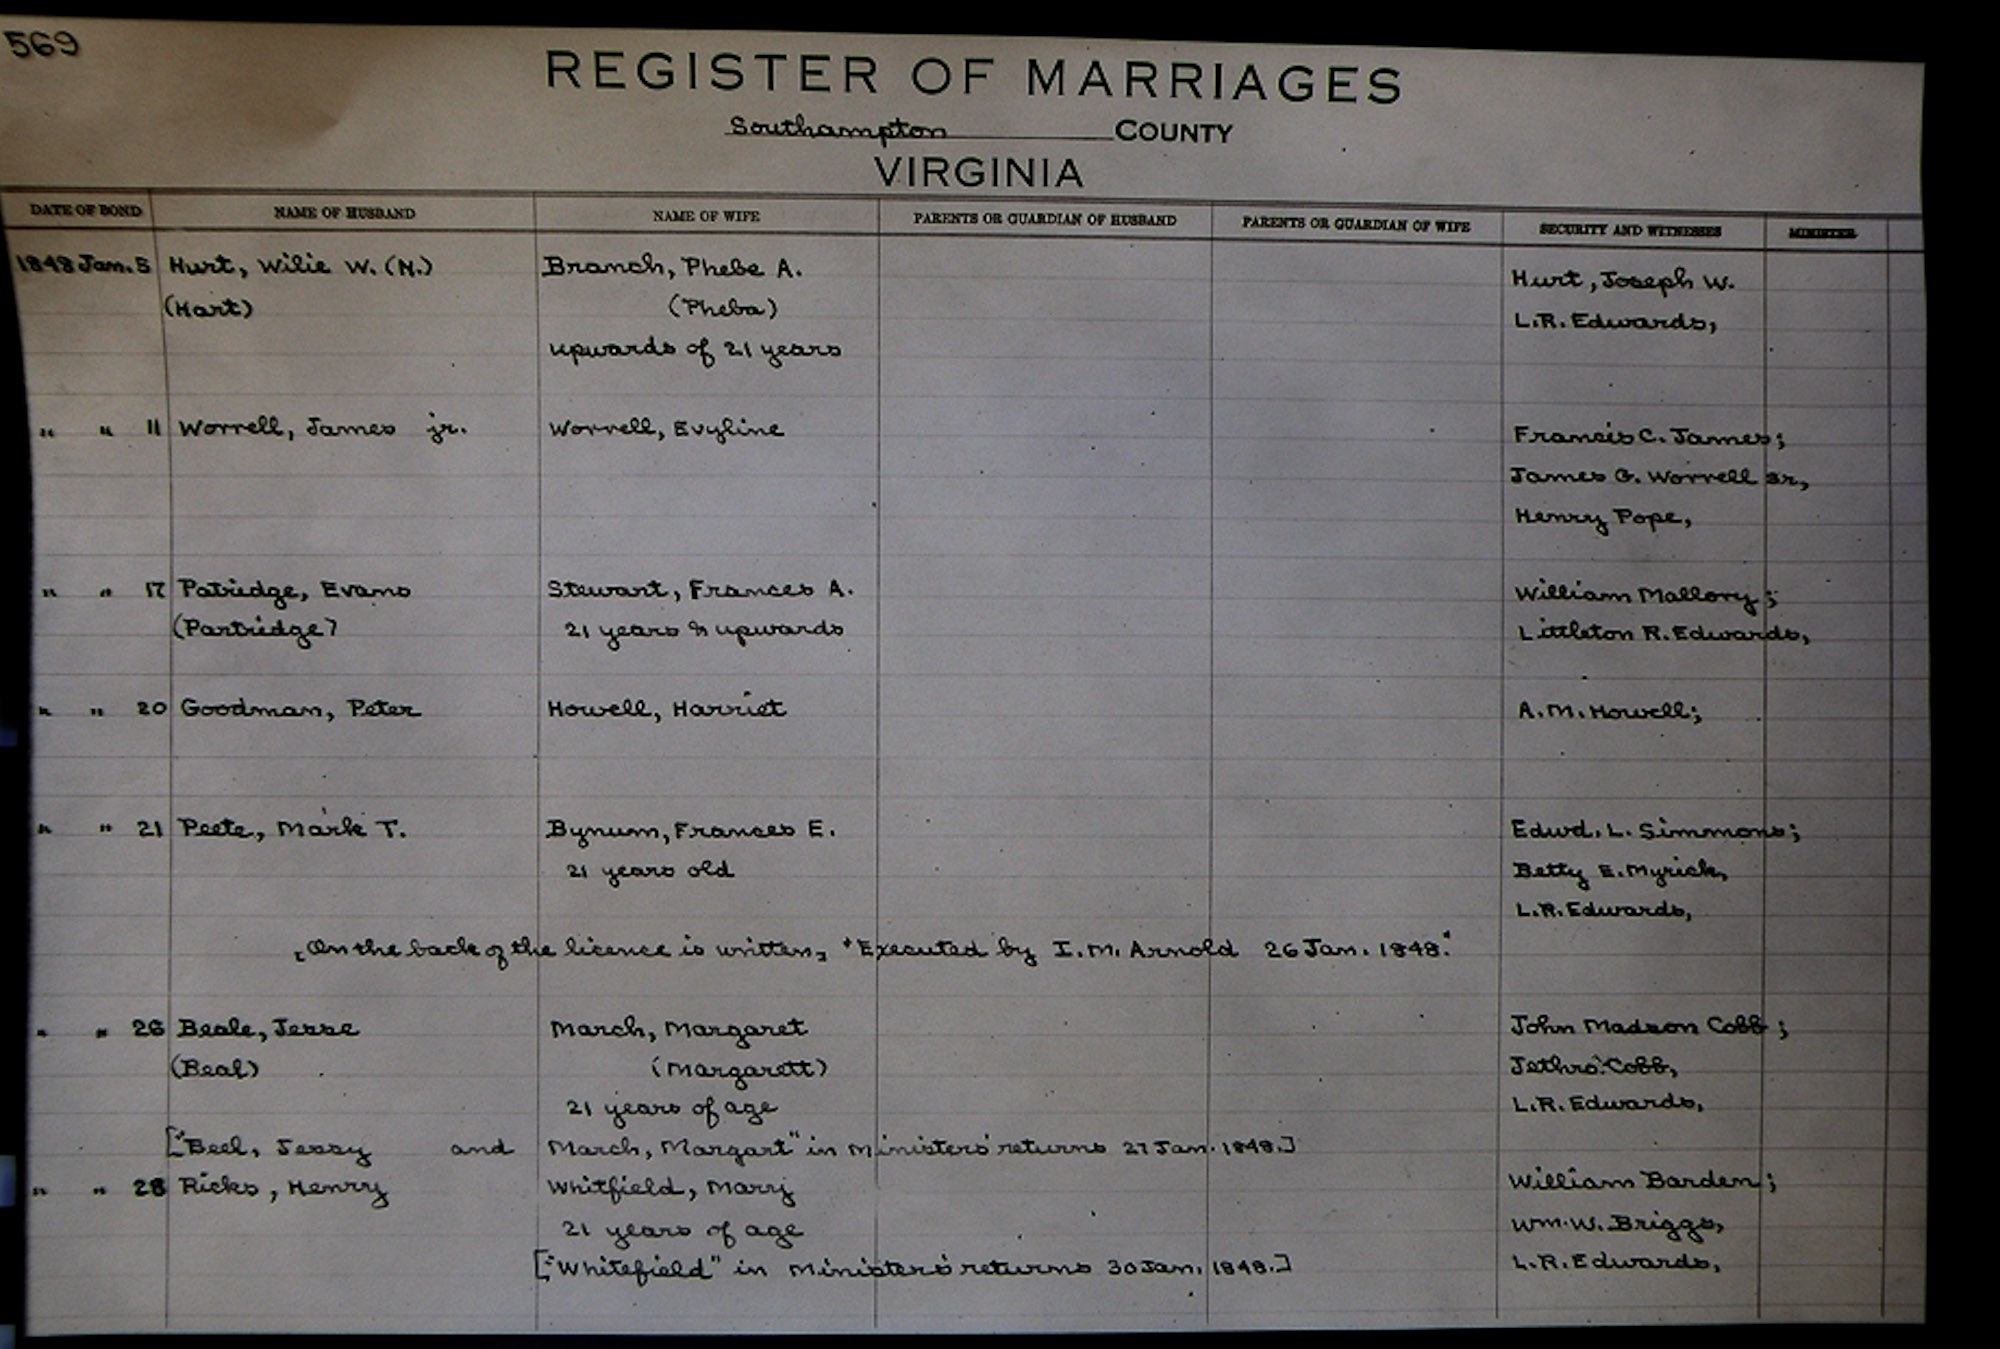 569
REGISTER OF MARRIAGES
Southampton COUNTY
VIRGINIA
DATE OF BOND NAME OF HUSBAND NAME OF WIFE PARENTS OR GUARDIAN OF HUSBAND PARENTS OR GUARDIAN OF WIFE SECURITY AND WITNESSES MINISTER
1848 Jan. 5 Hurt, Wilie W. (N.) Branch, Phebe A. Hurt, Joseph W.
(Hart) (Pheba) L.R. Edwards,
upwards of 21 years
" " 11 Worrell, James jr. Worrell, Evyline Francis C. James;
James G. Worrell sr,
Henry Pope,
" " 17 Patridge, Evans Stewart, Frances A. William Mallory;
(Partridge) 21 years & upwards Littleton R. Edwards,
" " 20 Goodman, Peter Howell, Harriet A.M. Howell;
" " 21 Peete, Mark T. Bynum, Frances E. Edwd. L. Simmons;
21 years old Betty E. Myrick,
L.R. Edwards,
[On the back of the licence is written] "Executed by I. M. Arnold 26 Jan. 1848."
" " 26 Beale, Jesse March, Margaret John Madson Cobb;
(Beal) (Margarett) Jethro Cobb,
21 years of age L.R. Edwards,
["Beel, Jessy and March, Margart" in Ministers' returns 27 Jan. 1848.]
" " 28 Ricks, Henry Whitfield, Mary William Barden;
21 years of age Wm. W. Briggs,
["Whitefield" in Ministers' returns 30 Jan. 1848.] L.R. Edwards,